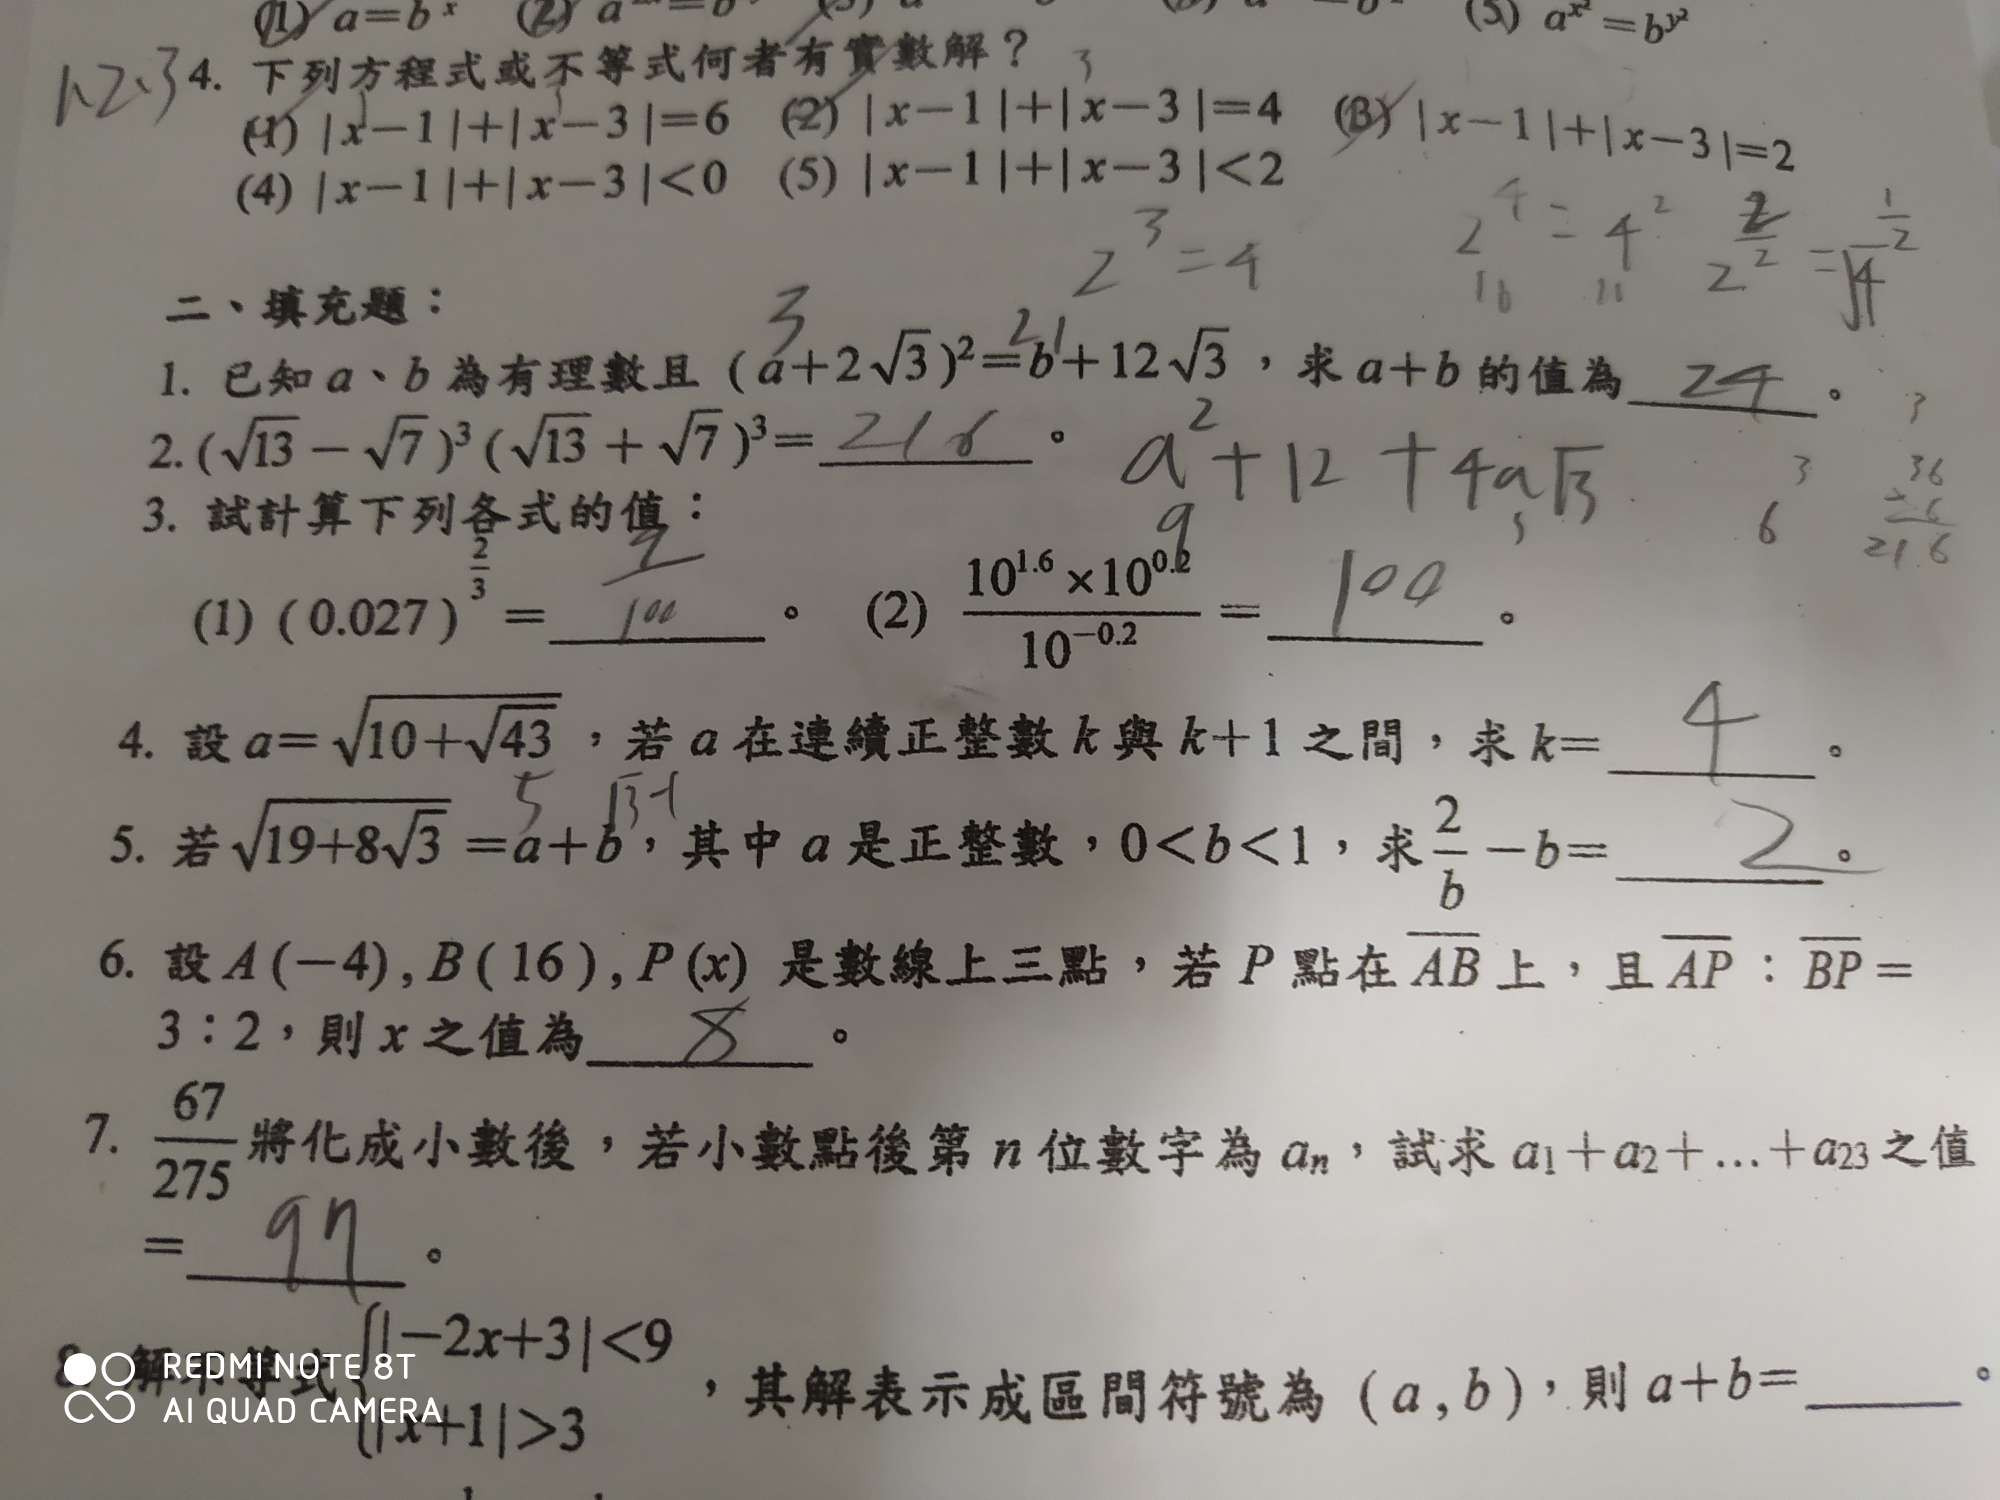 (1) a=bˣ (2) (5) aˣ²=bʸ²
1.2.3 4. 下列方程式或不等式何者有實數解？
(1) |x−1|+|x−3|=6 (2) |x−1|+|x−3|=4 (3) |x−1|+|x−3|=2
(4) |x−1|+|x−3|<0 (5) |x−1|+|x−3|<2
2³=4 2⁴=4²
二、填充題：
1. 已知 a、b 為有理數且 (a+2√3)²=b+12√3，求 a+b 的值為 24 。
3 21
2. (√13−√7)³(√13+√7)³= 216 。
a²+12+4a√3
9
6³ 36
216
3. 試計算下列各式的值：
(1) (0.027)^(2/3) = 9/100 。 (2) (10^1.6×10^0.2)/10^−0.2 = 100 。
4. 設 a=√(10+√43)，若 a 在連續正整數 k 與 k+1 之間，求 k= 4 。
5 √3-1
5. 若 √(19+8√3)=a+b，其中 a 是正整數，0<b<1，求 2/b −b= 2 。
6. 設 A(−4), B(16), P(x) 是數線上三點，若 P 點在 AB 上，且 AP：BP=
3：2，則 x 之值為 8 。
7. 67/275 將化成小數後，若小數點後第 n 位數字為 aₙ，試求 a₁+a₂+…+a₂₃ 之值
= 97 。
8. 解不等式 {|−2x+3|<9
|x+1|>3 ，其解表示成區間符號為 (a,b)，則 a+b= 。
REDMI NOTE 8T
AI QUAD CAMERA